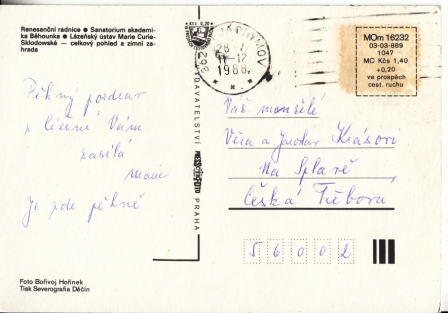 Renesanční radnice ● Sanatorium akademi-
ka Běhounka ● Lázeňský ústav Marie Curie-
Sklodowské — celkový pohled a zimní za-
hrada
Pěkný pozdrav
z lázní Vám
zasílá
Je zde pěkně
Foto Bořivoj Hořínek
Tisk Severografia Děčín
Kčs 0,20
VYDAVATELSTVÍ
PRESSFOTO
PRAHA
JÁCHYMOV
362
28.-7.
-12
1988
MOm 16232
03-03-889
1047
MC Kčs 1,40
+0,20
ve prospěch
cest. ruchu
Váž manželé
Věra a Jaroslav Krásovi
Na Splavě
Česká Třebová
56002